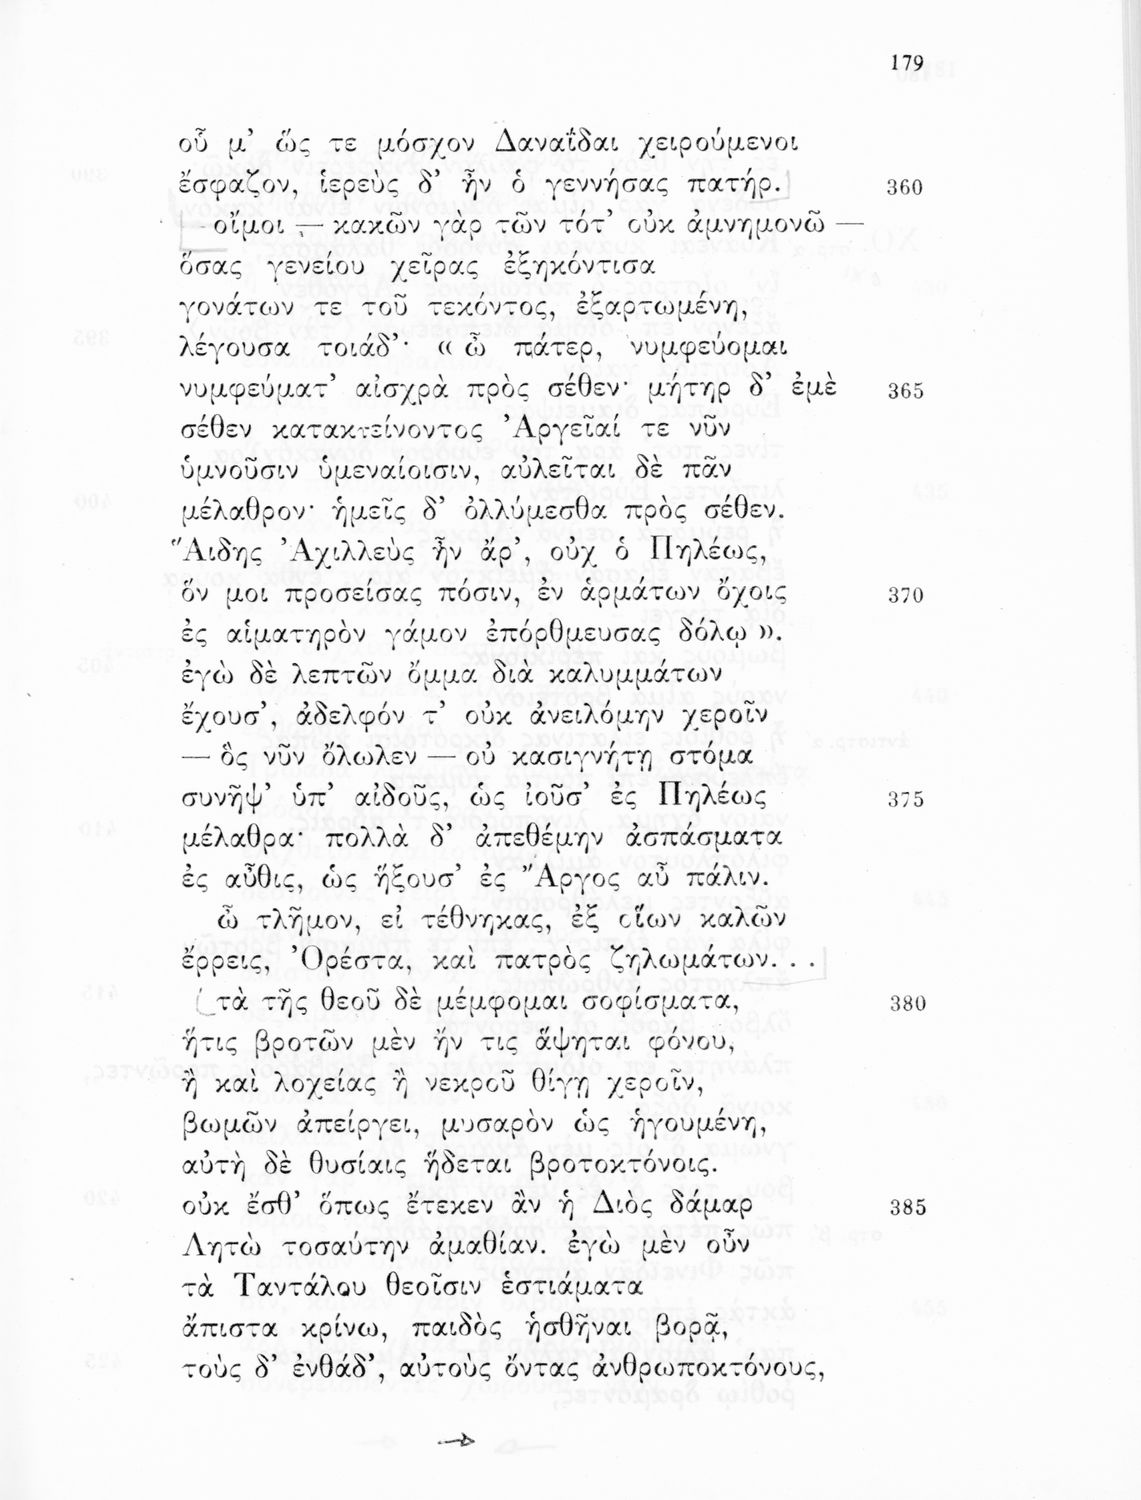 179
οὗ μ’ ὥς τε μόσχον Δαναΐδαι χειρούμενοι
ἔσφαζον, ἱερεὺς δ’ ἦν ὁ γεννήσας πατήρ. 360
οἴμοι — κακῶν γὰρ τῶν τότ’ οὐκ ἀμνημονῶ —
ὅσας γενείου χεῖρας ἐξηκόντισα
γονάτων τε τοῦ τεκόντος, ἐξαρτωμένη,
λέγουσα τοιάδ’· « ὦ πάτερ, νυμφεύομαι
νυμφεύματ’ αἰσχρὰ πρὸς σέθεν· μήτηρ δ’ ἐμὲ 365
σέθεν κατακτείνοντος Ἀργεῖαί τε νῦν
ὑμνοῦσιν ὑμεναίοισιν, αὐλεῖται δὲ πᾶν
μέλαθρον· ἡμεῖς δ’ ὀλλύμεσθα πρὸς σέθεν.
Ἅιδης Ἀχιλλεὺς ἦν ἄρ’, οὐχ ὁ Πηλέως,
ὅν μοι προσείσας πόσιν, ἐν ἁρμάτων ὄχοις 370
ἐς αἱματηρὸν γάμον ἐπόρθμευσας δόλῳ ».
ἐγὼ δὲ λεπτῶν ὄμμα διὰ καλυμμάτων
ἔχουσ’, ἀδελφόν τ’ οὐκ ἀνειλόμην χεροῖν
— ὃς νῦν ὄλωλεν — οὐ κασιγνήτῃ στόμα
συνῆψ’ ὑπ’ αἰδοῦς, ὡς ἰοῦσ’ ἐς Πηλέως 375
μέλαθρα· πολλὰ δ’ ἀπεθέμην ἀσπάσματα
ἐς αὖθις, ὡς ἥξουσ’ ἐς Ἄργος αὖ πάλιν.
ὦ τλῆμον, εἰ τέθνηκας, ἐξ οἵων καλῶν
ἔρρεις, Ὀρέστα, καὶ πατρὸς ζηλωμάτων. . .
τὰ τῆς θεοῦ δὲ μέμφομαι σοφίσματα, 380
ἥτις βροτῶν μὲν ἤν τις ἅψηται φόνου,
ἢ καὶ λοχείας ἢ νεκροῦ θίγῃ χεροῖν,
βωμῶν ἀπείργει, μυσαρὸν ὡς ἡγουμένη,
αὐτὴ δὲ θυσίαις ἥδεται βροτοκτόνοις.
οὐκ ἔσθ’ ὅπως ἔτεκεν ἂν ἡ Διὸς δάμαρ 385
Λητὼ τοσαύτην ἀμαθίαν. ἐγὼ μὲν οὖν
τὰ Ταντάλου θεοῖσιν ἑστιάματα
ἄπιστα κρίνω, παιδὸς ἡσθῆναι βορᾷ,
τοὺς δ’ ἐνθάδ’, αὐτοὺς ὄντας ἀνθρωποκτόνους,